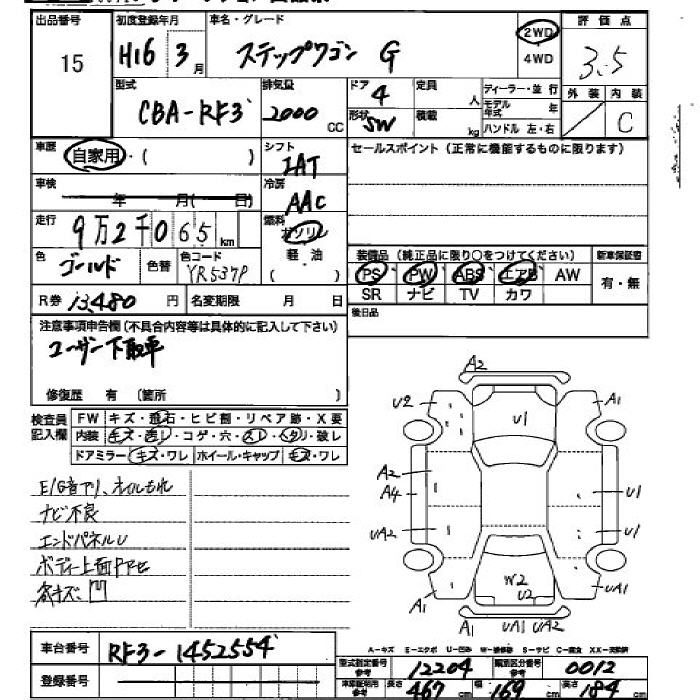 出品番号
15
初度登録年月
H16 3月
車名・グレード
ステップワゴン G
2WD
4WD
評価点
3.5
外装 内装
C
型式
CBA-RF3
排気量
2000 CC
ドア
4
形状
SW
定員 人
積載 kg
ディーラー・並行
モデル年式 年
ハンドル 左・右
車歴
自家用・( )
シフト
IAT
セールスポイント (正常に機能するものに限ります)
車検 年 月( 日)
冷房
AAC
走行
9万2千065 km
燃料
ガソリン
軽油
( )
色
ゴールド
色替
色コード
YR537P
装備品 (純正品に限り○をつけてください)
PS PW ABS エアB AW
SR ナビ TV カワ
新車保証書
有・無
R券 13,480 円
名変期限 月 日
後日品
注意事項申告欄(不具合内容等は具体的に記入して下さい)
ユーザー下取車
修復歴 有 (箇所 )
検査員記入欄
FW キズ・飛石・ヒビ割・リペア跡・X要
内装 キズ・汚レ・コゲ・穴・スレ・ヘタリ・破レ
ドアミラー キズ・ワレ ホイール・キャップ キズ・ワレ
E/G音アリ、オイルもれ
ナビ不良
エンドパネルU
A2
U2
A1
U1
A2
A4
U1
UA2
U1
W2
U2
A1
UA1
A1
UA1
UA2
A-キズ E-エクボ U-凹み W-補修跡 S-サビ C-腐食 XX-交換済
車台番号 RF3-1452554
登録番号
型式指定番号 参考 12204
類別区分番号 参考 0012
車検証明用 参考 長さ 467 cm 幅 169 cm 高さ 184 cm